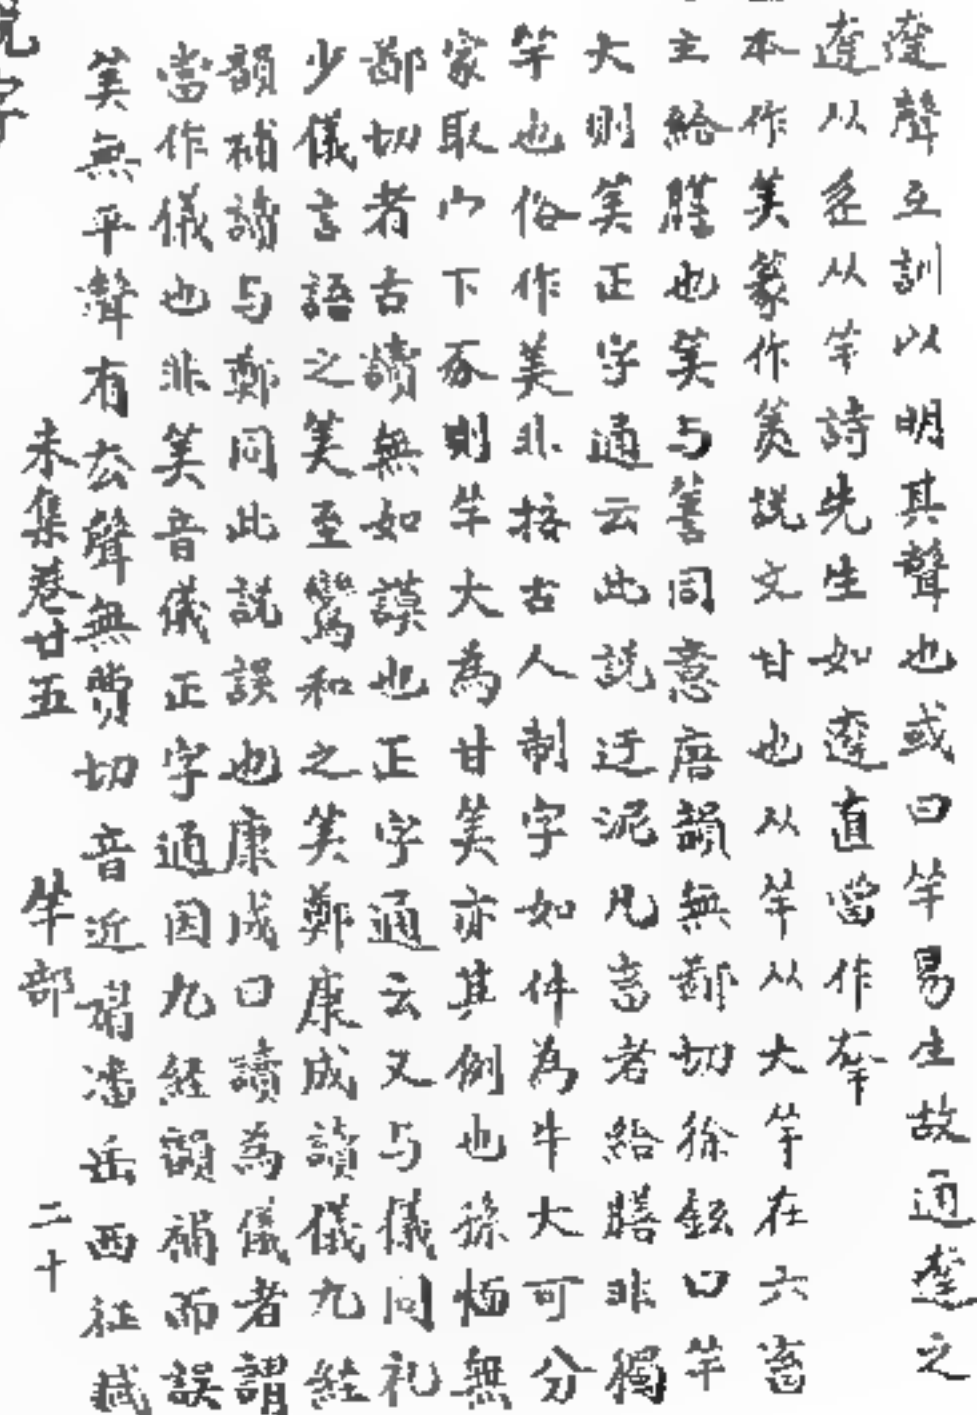 薘聲互訓以明其聲也或曰羊易生故通薘之
達从辵从羊詩先生如達直當作羍
本作美篆作羙説文甘也从羊从大羊在六畜
主給膳也美与善同意唐韻無鄙切徐鉉曰羊
大則美正字通云此説迂泥凡畜者給膳非獨
羊也俗作羙非按古人制字如件為牛大可分
家取宀下豕則羊大為甘美亦其例也孫愐無
鄙切者古讀無如謨也正字通云又与儀同礼
少儀言語之美至鸞和之美鄭康成讀儀九經
韻補讀与鄭同此説誤也康成曰讀為儀者謂
當作儀也非美音儀正字通因九經韻補而誤
美無平聲有去聲無費切音近媚潘岳西征賦
未集巻廿五 羊部 二十
説字